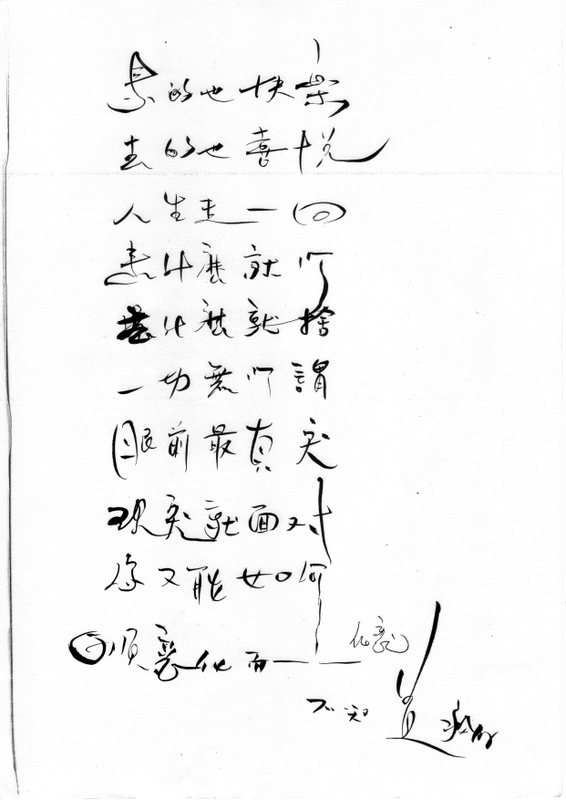 來的也快樂
去的也喜悅
人生走一回
什麼就
什麼就捨
一切無所謂
眼前最真实
现实就面对
你又能如何
順意化而一
不知道